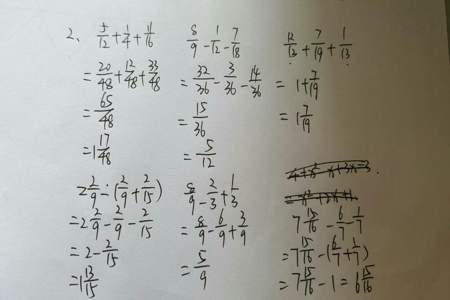 2、 5/12+1/4+11/16
=20/48+12/48+33/48
=65/48
=1 17/48
8/9-1/12-7/18
=32/36-3/36-14/36
=15/36
=5/12
12/13+7/19+1/13
=1+7/19
=1 7/19
2 2/9-(2/9+2/15)
=2 2/9-2/9-2/15
=2-2/15
=1 13/15
8/9-2/3+1/3
=8/9-6/9+3/9
=5/9
7 15/16-6/7-1/7
=7 15/16-(6/7+1/7)
=7 15/16-1=6 15/16